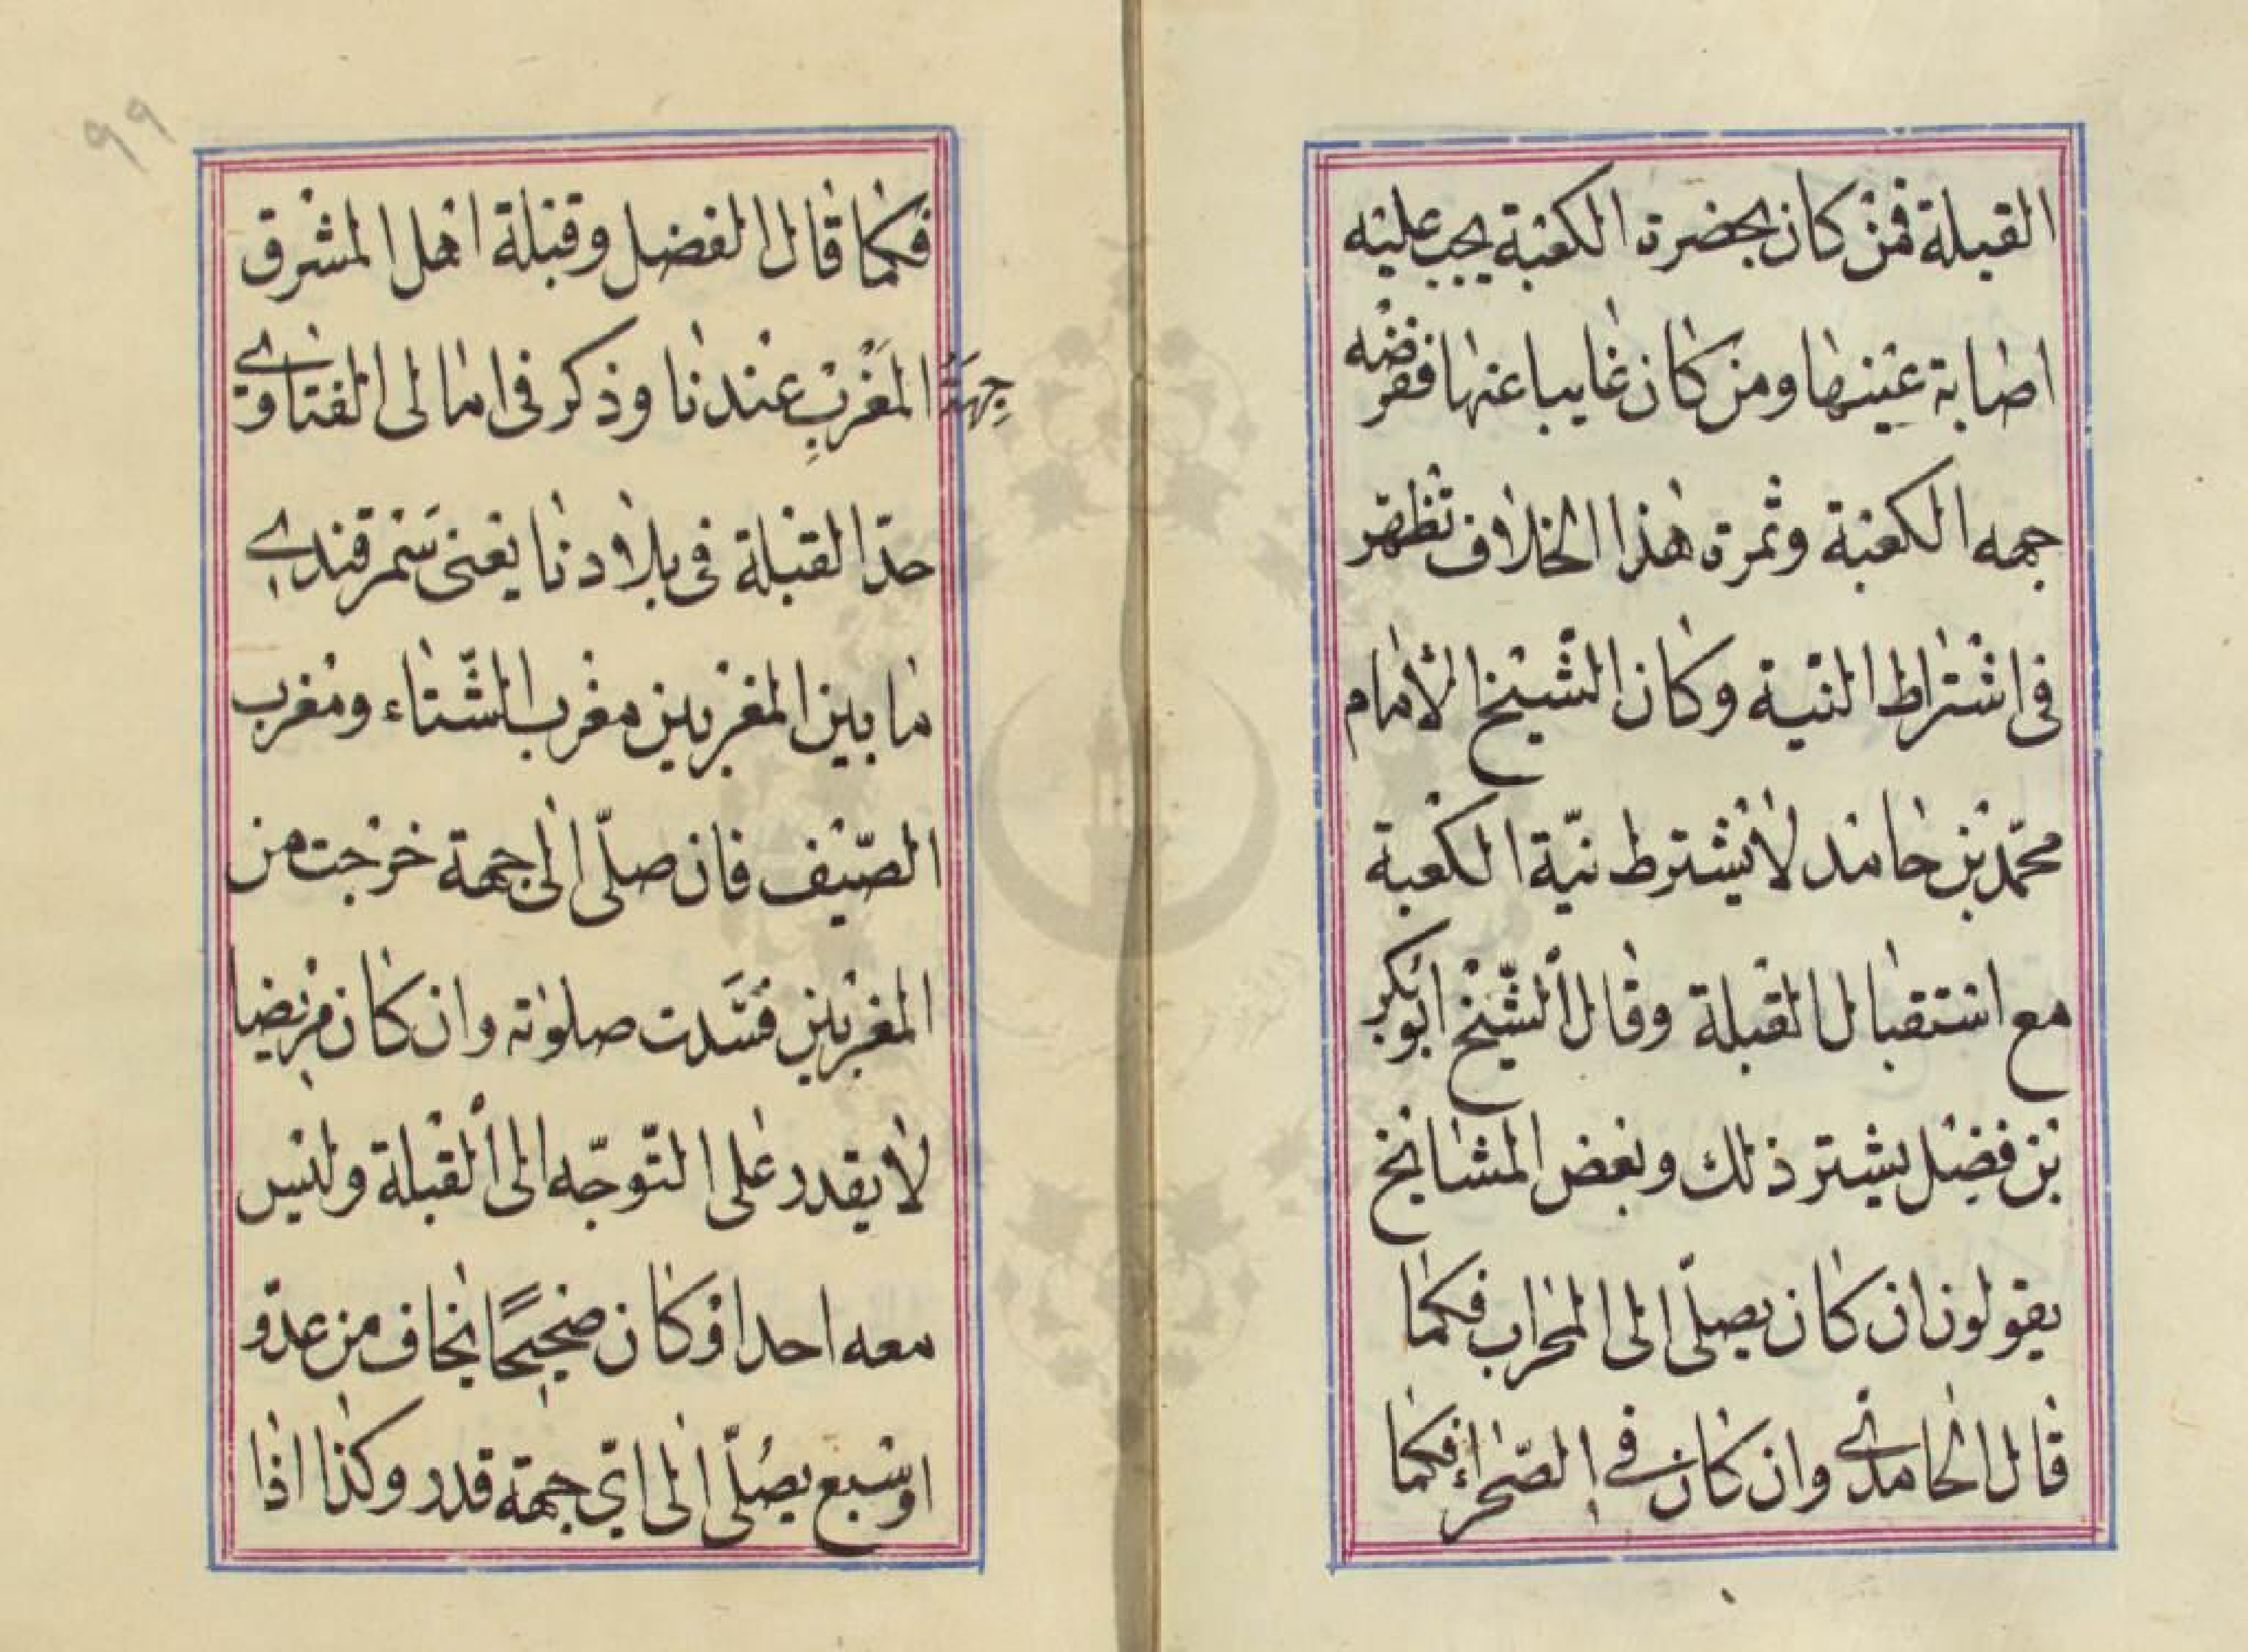 القبلة فمن كان بحضرة الكعبة يجب عليه
اصابة عينها ومن كان غايبا عنها ففرضه
جهه الكعبة وثمرة هذا الخلاف تظهر
فى اشتراط النية وكان الشيخ الامام
محمّد بن حامد لا يشترط نيّة الكعبة
مع استقبال القبلة وقال الشّيخ ابو بكر
بن فضيل يشتر ذلك وبعض المشايخ
يقولون ان كان يصلّى الى المحراب فكما
قال الحامدى وان كان فى الصّحراء فكما
٩٩
فكما قال الفضل وقبلة اهل المشرق
جِهَةُ المَغْرِبِ عندنا وذكر فى امالى الفتاوى
حدّ القبلة فى بلادنا يعنى سَمرقندى
ما بين المغربين مغرب الشّتاء ومغرب
الصّيف فان صلّى الى جهة خرجت من
المغربين فسَدت صلوته وان كان مريضا
لا يقدر على التّوجّه الى القبلة وليس
معه احد او كان صحيحًا يخاف من عدوّ
او سبع يصُلّى الى ايّ جهة قدر وكذا اذا